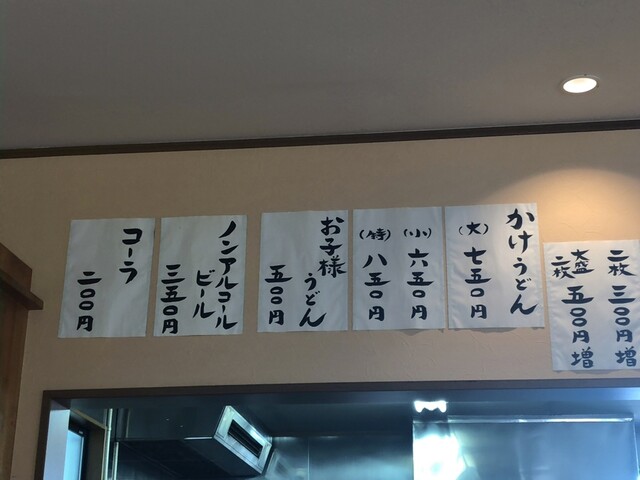 二枚 三〇〇円増
大盛
二枚 五〇〇円増
かけうどん
(大) 七五〇円
(小) 六五〇円
(特) 八五〇円
お子様
うどん
五〇〇円
ノンアルコール
ビール
三五〇円
コーラ
二〇〇円